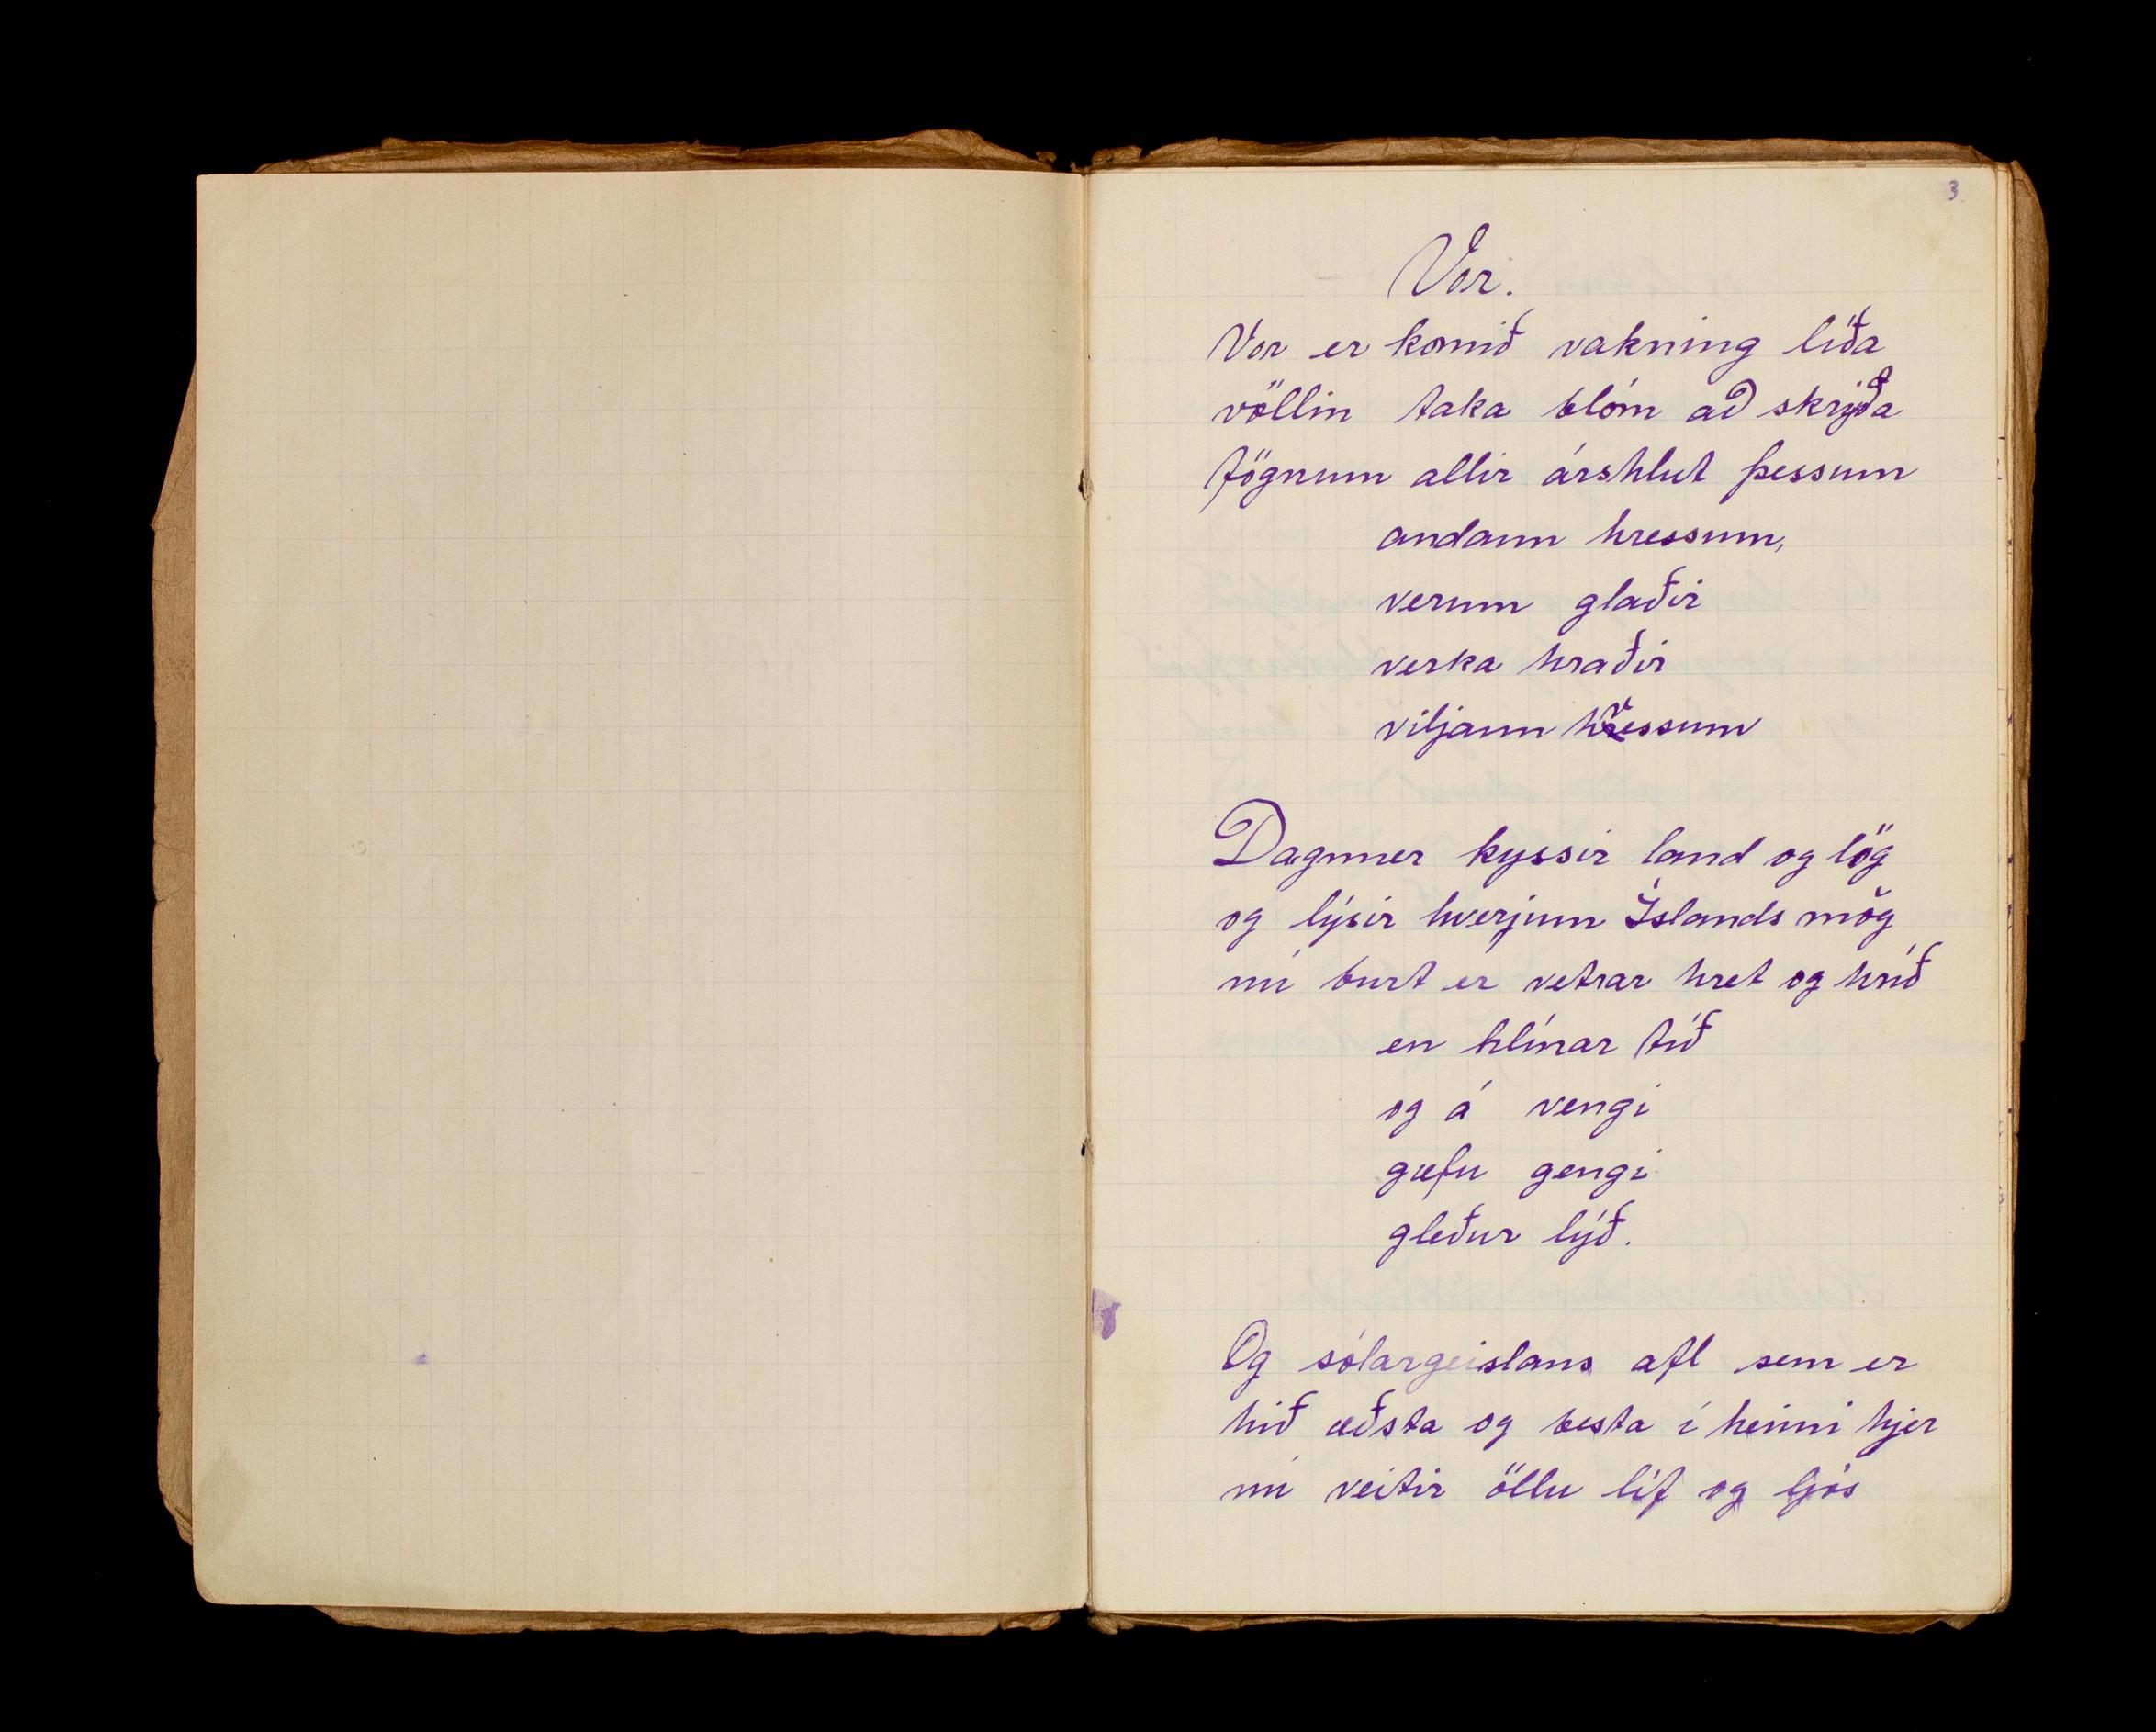 3
Vor.
Vor er komið vakning líða
völlin taka blóm að skrýða
fögnum allir árshlut þessum
andann hressum,
verum glaðir
verka hraðir
viljann hvessum
Dagnner kyssir land og lög
og lýsir hverjum Íslands mög
nú burt er vetrar hret og hríð
en hlínar tíð
og á vengi
gæfu gengi
gleður lýð.
Og sólargeislans afl sem er
hið æðsta og besta í heimi hjer
nú veitir öllu líf og ljós